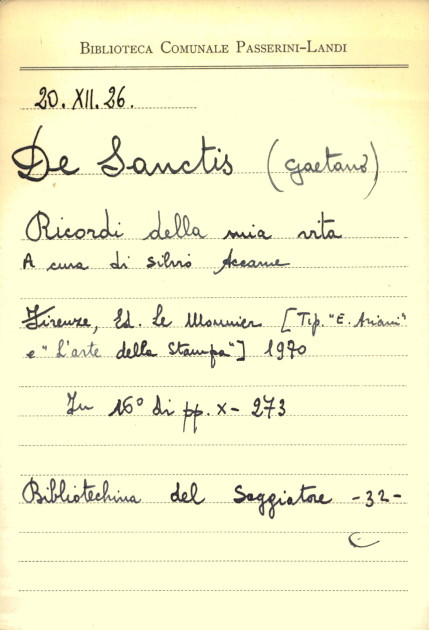 BIBLIOTECA COMUNALE PASSERINI-LANDI
20. XII. 26.
De Sanctis (Gaetano)
Ricordi della mia vita
A cura di Silvio Accame
Firenze, Ed. Le Monnier [Tip. "E. Ariani"
e "L'arte della Stampa"] 1970
In 16° di pp. X- 273
Bibliotechina del Saggiatore -32-